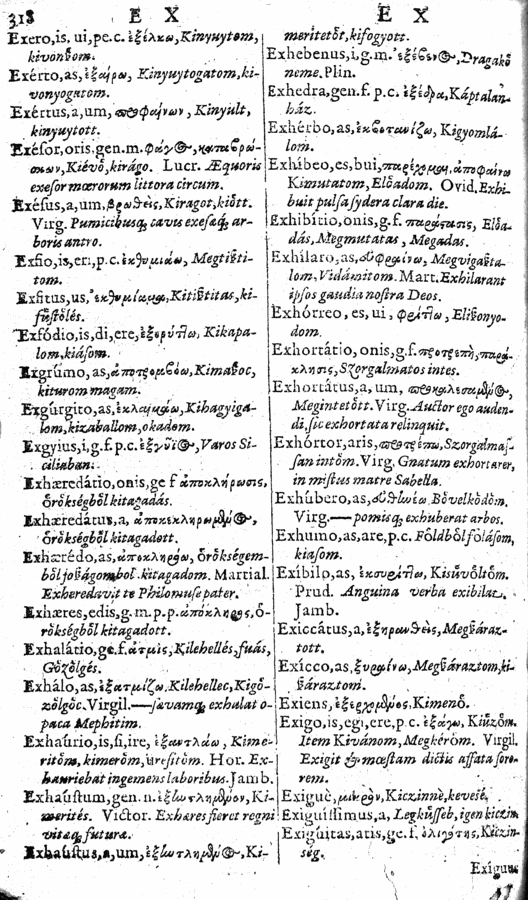 318 E X
Exero, is, ui, pe. c. ἐξέλκω, Kinyuytom,
kivonſom.
Exérto, as, ἐξαίρω, Kinyuytogatom, ki-
vonyogatom.
Exértus, a, um, προφαίνων, Kinyult,
kinyuytott.
Exéſor, oris, gen. m. Kiévő, kirágo. Lucr. Æquoris
exeſor mœrorum littora circum.
Exéſus, a, um, βρωθεὶς, Kiragot, kiőtt.
Virg. Pumicibusq́; cavis exeſæq́; ar-
boris antro.
Exfio, is, eri, p. c. ἐκθυμιάω, Megtiſti-
tom.
Exfitus, us, Kitiſtitas, ki-
fűſtőlés.
Exfódio, is, di, ere, ἐξορύττω, Kikapa-
lom, kiáſom.
Exgrumo, as, Kimaſoc,
kiturom magam.
Exgúrgito, as, Kihagyiga-
lom, kizaballom, okadom.
Exgyius, i, g. f. p. c. Varos Si-
ciliaban.
Exhæredátio, onis, ge f ἀποκλήρωσις,
örökségből kitagadás.
Exhæredátus, a,
örökségből kitagadott.
Exhærédo, as, ἀποκληρόω, örökségem-
ből joſágombol kitagadom. Martial.
Exheredavit te Philomuſe pater.
Exhæres, edis, g. m. p. p. ἀπόκληρος, ö-
rökségből kitagadott.
Exhalátio, ge. f. ἀτμὶς, Kilehellés, fuás,
Gőzőlgés.
Exhálo, as, ἐξατμίζω, Kilehellec, Kigő-
zőlgőc. Virgil.—ſævamq́; exhalat o-
paca Mephitim.
Exhaúrio, is, ſi, ire, ἐξαντλάω, Kime-
ritőm, kimerőm, üreſitőm. Hor. Ex-
hauriebat ingemens laboribus. Jamb.
Exhaúſtum, gen. n. Ki-
merités. Victor. Exhæres fieret regni
vitæq́; futuræ.
Exhaúſtus, a, um, Ki-
E X
meritetőt, kifogyott.
Exhebenus, i, g. m. Dragakő
neme. Plin.
Exhedra, gen. f. p. c. ἐξέδρα, Káptalan-
ház.
Exhérbo, as, ἐκβοτανίζω, Kigyomlá-
lom.
Exhíbeo, es, bui, παρέχομαι, ἀποφαίνω
Kimutatom, Előadom. Ovid. Exhi-
buit pulſa ſydera clara die.
Exhibítio, onis, g. f. Előa-
dás, Megmutatas, Megadas.
Exhílaro, as, εὐφραίνω, Megvigaſta-
lom, Vidámitom. Mart. Exhilarant
ipſos gaudia noſtra Deos.
Exhórreo, es, ui, φρίττω, Eliſonyo-
dom.
Exhortátio, onis, g. f. προτροπὴ, παρά-
κλησις, Szorgalmatos intes.
Exhortátus, a, um,
Megintetőtt. Virg. Auctor ego auden-
di, ſic exhortata relinquit.
Exhórtor, aris, προτρέπω, Szorgalmaſ-
ſan intőm. Virg. Gnatum exhortarer,
in miſtus matre Sabella.
Exhúbero, as, Bővelkődőm.
Virg.—pomisq́; exhuberat arbos.
Exhumo, as, are, p. c. Főldből főláſom,
kiaſom.
Exíbilo, as, ἐκσυρίττω, Kisűvőltőm.
Prud. Anguina verba exibilat.
Jamb.
Exiccátus, a, ἐξηρανθεὶς, Megſáraz-
tott.
Exícco, as, ξηραίνω, Megſáraztom, ki-
ſáraztom.
Exiens, Kimenő.
Exigo, is, egi, ere, p. c. ἐξάγω, Kiűzőm.
Item Kivánom, Megkérőm. Virgil.
Exigit & mœstam dictis affata ſoro-
rem.
Exiguè, μικρὸν, Kiczinnè, kevesè.
Exiguiſſimus, a, Legkűſſeb, igen kiczin.
Exigúitas, atis, ge. f. ὀλιγότης, Kiczin-
ség.
Exiguus